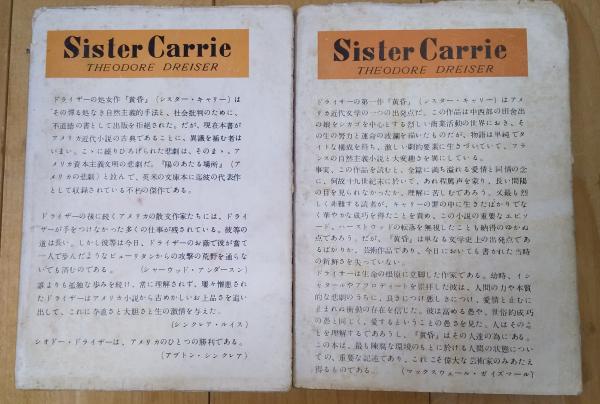 Sister Carrie
THEODORE DREISER
ドライザーの処女作『黄昏』(シスター・キャリー)は
その憚る処なき自然主義的手法と、社会批判のために、
不道徳の書として出版を拒絶された。だが、現在本書が
アメリカ近代小説の古典であることに、異議を補む者は
いまい。こゝに繰りひろげられた悲劇は、そのまゝ、ア
メリカ資本主義文明の悲劇だ。『陽のあたる場所』(ア
メリカの悲劇)と竝んで、英米の文庫本に迄彼の代表作
として収録されている不朽の傑作である。
ドライザーの後に続くアメリカの散文作家たちには、ドライ
ザーが手をつけなかった多くの仕事が残されている。彼等の
道は長い。しかし彼等は今日、ドライザーのお蔭で彼が嘗て
一人で歩んだようなピューリタンからの攻撃の荒野を通らな
いでも済むのである。(シャーウッド・アンダースン)
誰よりも孤独な歩みを続け、常に理解されず、屢々憎悪され
たドライザーはアメリカ小説から古めかしいお上品さを追い
出して、これに卒直さと大胆さと生の激情を与えた。
(シンクレア・ルイス)
シオドー・ドライザーは、アメリカのひとつの勝利である。
(アプトン・シンクレア)
Sister Carrie
THEODORE DREISER
ドライザーの第一作『黄昏』(シスター・キャリー)はアメ
リカ近代文学の一つの出発点だ。この作品は中西部の田舎出
の娘をシカゴを中心とする烈しい商業活動の世界におき、そ
の生の努力と運命の波瀾を描いたものだが、物語は単純でタ
イトな構成を持ち、激しい劇的要素に生きづいていて、フラ
ンスの自然主義小説と大変趣きを異にしている。
事実、この作品を読むと、全篇に満ち溢れる愛情と同情の念
に、何故十九世紀末に於いて、あれ程罵声を蒙り、長い間陽
の目を見られなかったか、理解に苦しむであろう。又最も烈
しく非難する読者が、キャリーの罪の中に生きたばかりでな
く華やかな成功を得たことを責め、この小説の重要なエピソ
ード、ハーストウッドの転落を無視したことも納得のゆかぬ
点であろう。だが、『黄昏』は単なる文学史上の出発点であ
るばかりか、芸術作品であり、今日においても書かれた当時
の新鮮さを失っていない。
ドライザーは生命の根原に立脚した作家である。幼時、イシ
ュタールやアフロディートを崇拝した彼は、人間の力や本質
的な悲劇のうちに、良きにつけ悪しきにつけ、愛情と止むに
止まれぬ衝動の存在を信じた。彼は富める愚や、世俗的成功
の愚と同じく、愛するということの愚さを見た。人はそのこ
とを理解するであろうし、『黄昏』はその人達の為にある。
この本は、最も陳腐な環境のもとに於ける人間の状態につい
ての、重要な記述であり、これこそ偉大な芸術家のみあたえ
得るものである。(マックスウェール・ガイズマール)